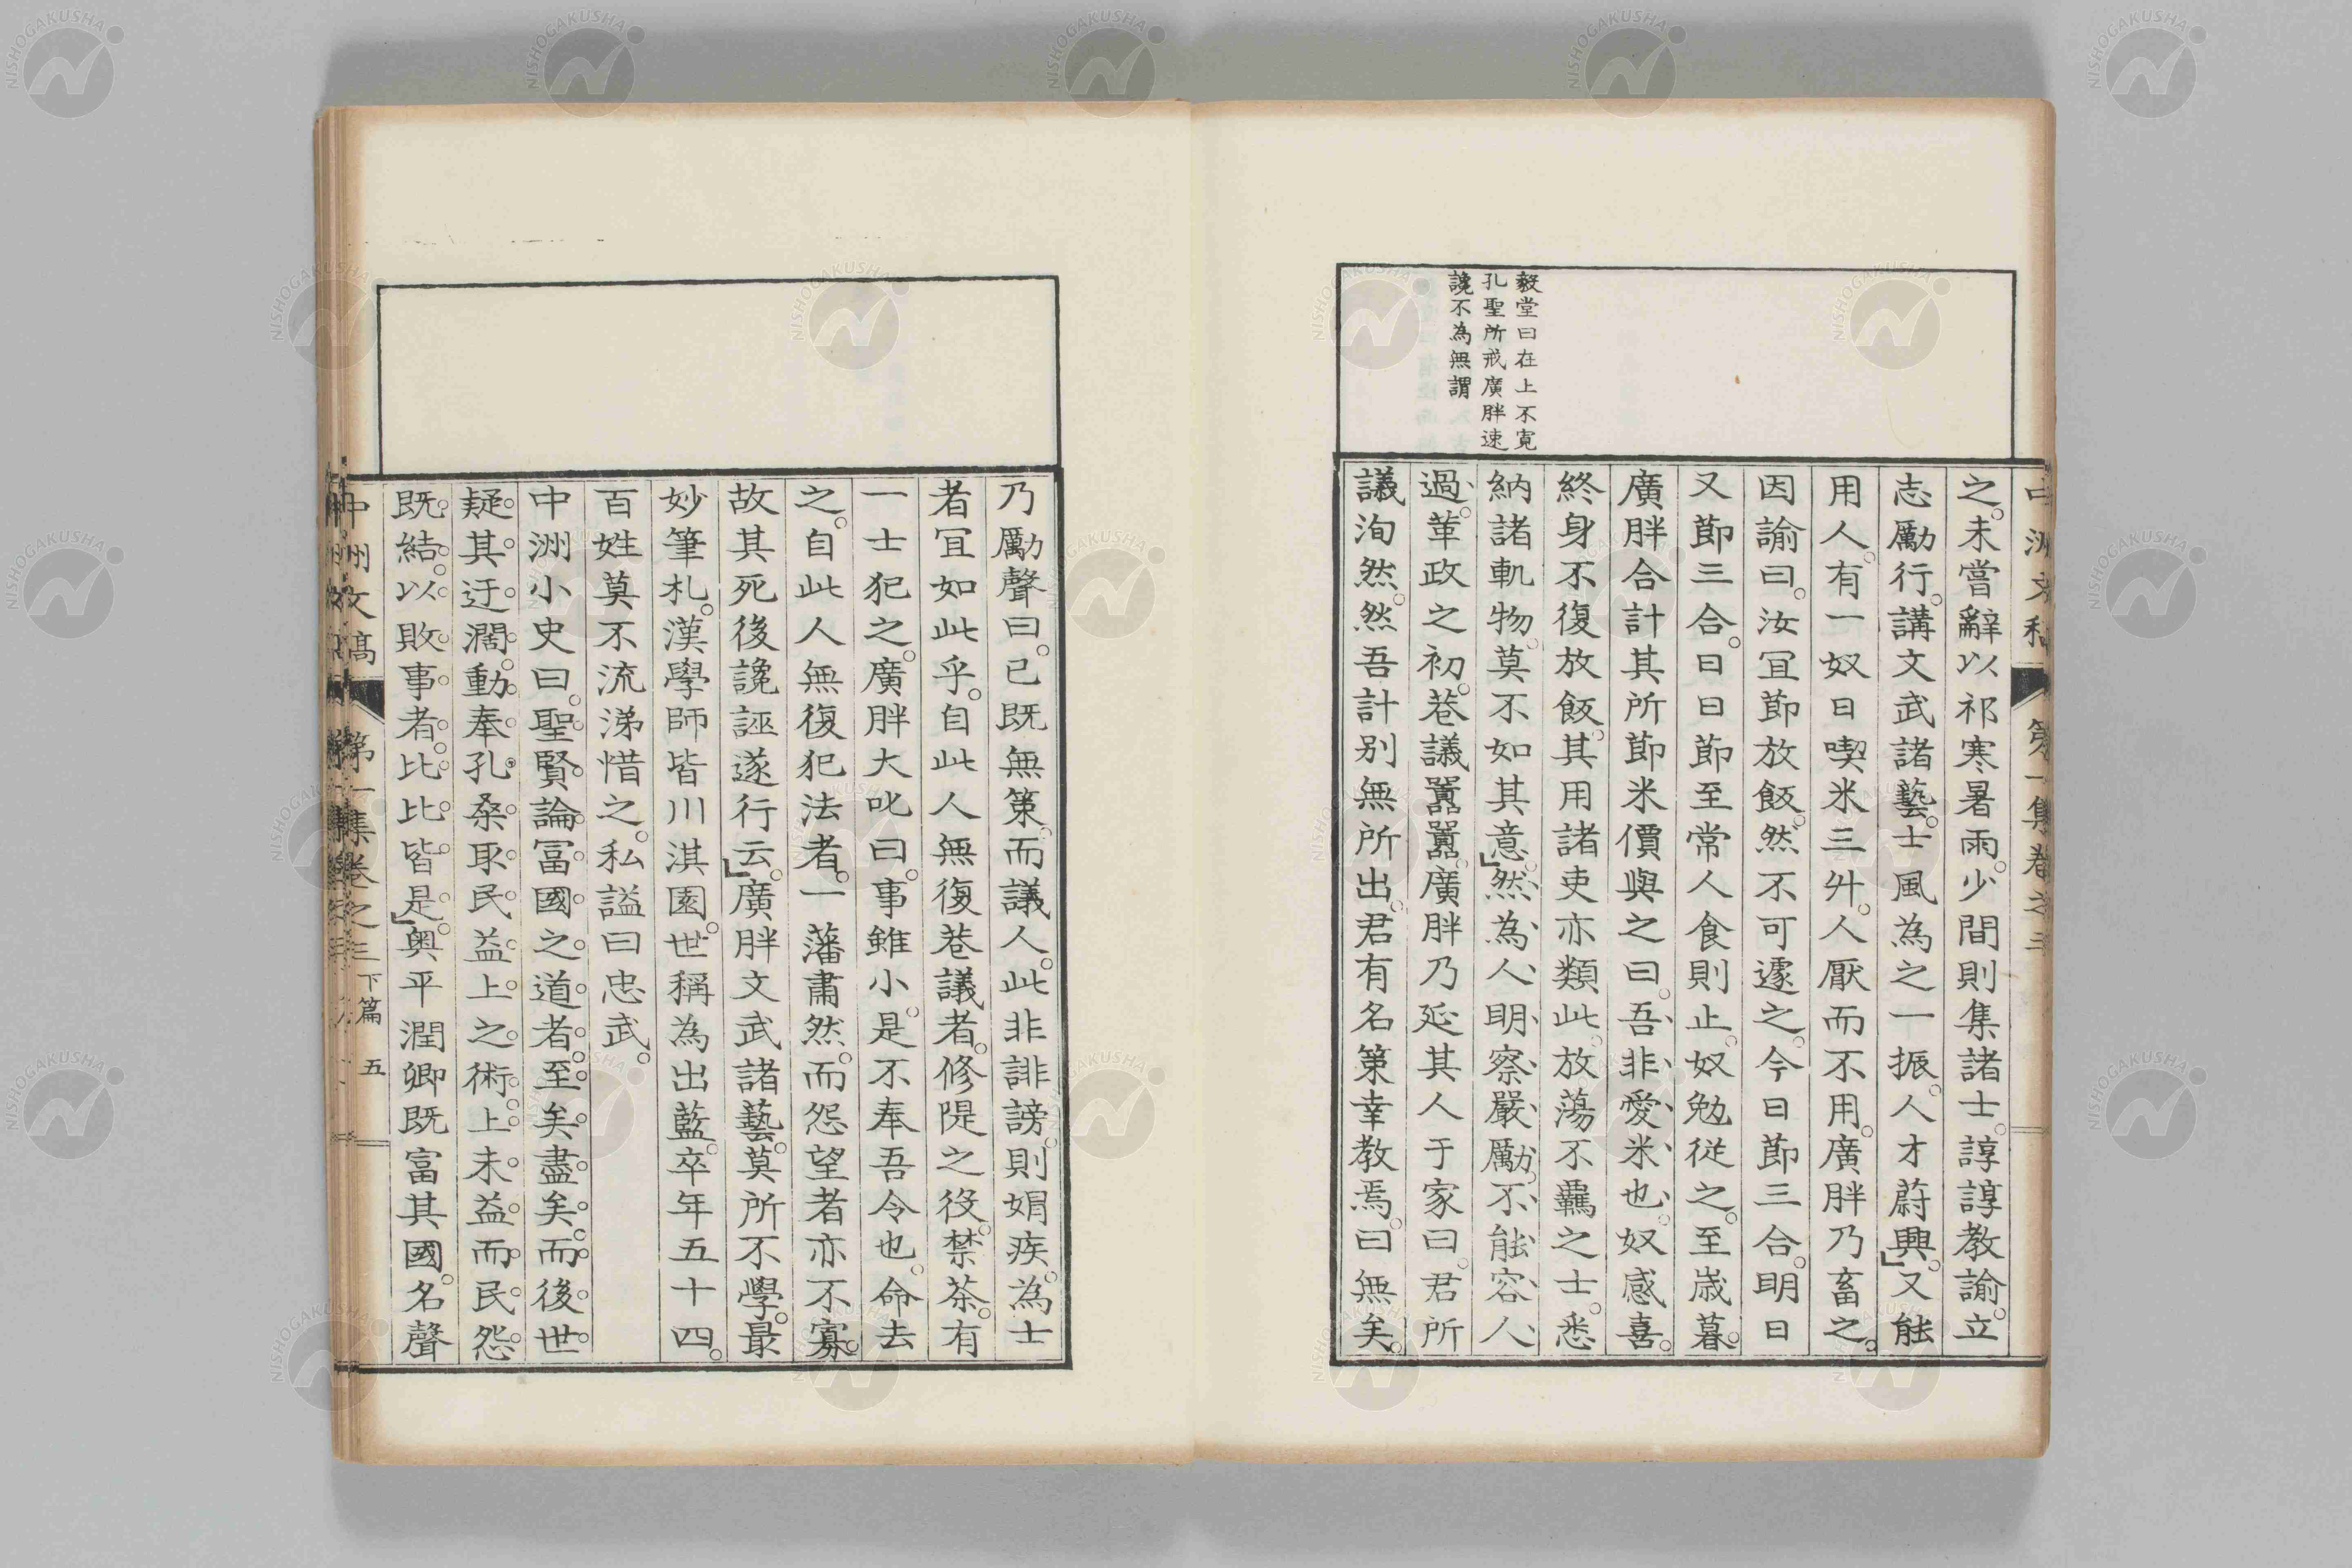 毅堂曰在上不寛
孔聖所戒廣胖速
讒不為無謂
之。未嘗辭以祁寒暑雨。少間則集諸士。諄諄教諭。立
志勵行。講文武諸藝。士風為之一振。人才蔚興。」又能
用人。有一奴日喫米三升。人厭而不用。廣胖乃畜之。
因諭曰。汝冝節放飯。然不可遽之。今日節三合。明日
又節三合。日日節至常人食則止。奴勉從之。至歳暮。
廣胖合計其所節米價與之曰。吾非愛米也。奴感喜。
終身不復放飯。其用諸吏亦類此。放蕩不羈之士。悉
納諸軌物。莫不如其意。」然為人明察嚴勵。不能容人
過。莗政之初。巷議囂囂。廣胖乃延其人于家曰。君所
議洵然。然吾計別無所出。君有名策幸教焉。曰無矣。
乃勵聲曰。已既無策。而議人。此非誹謗。則娟疾。為士
者冝如此乎。自此人無復巷議者。修隄之役。禁茶。有
一士犯之。廣胖大叱曰。事雖小。是不奉吾令也。命去
之。自此人無復犯法者。一藩肅然。而怨望者亦不寡。
故其死後讒誣遂行云。」廣胖文武諸藝。莫所不學。最
妙筆札。漢學師皆川淇園。世稱為出藍。卒年五十四。
百姓莫不流涕惜之。私謚曰忠武。
中洲小史曰。聖賢論冨國之道者。至矣盡矣。而後世
疑其迂濶。動奉孔桑取民益上之術。上未益而民怨
既結。以敗事者。比比皆是。」奥平潤卿既富其國。名聲
中洲文稿
第一集卷之三
下篇
五
NISHOGAKUSHA